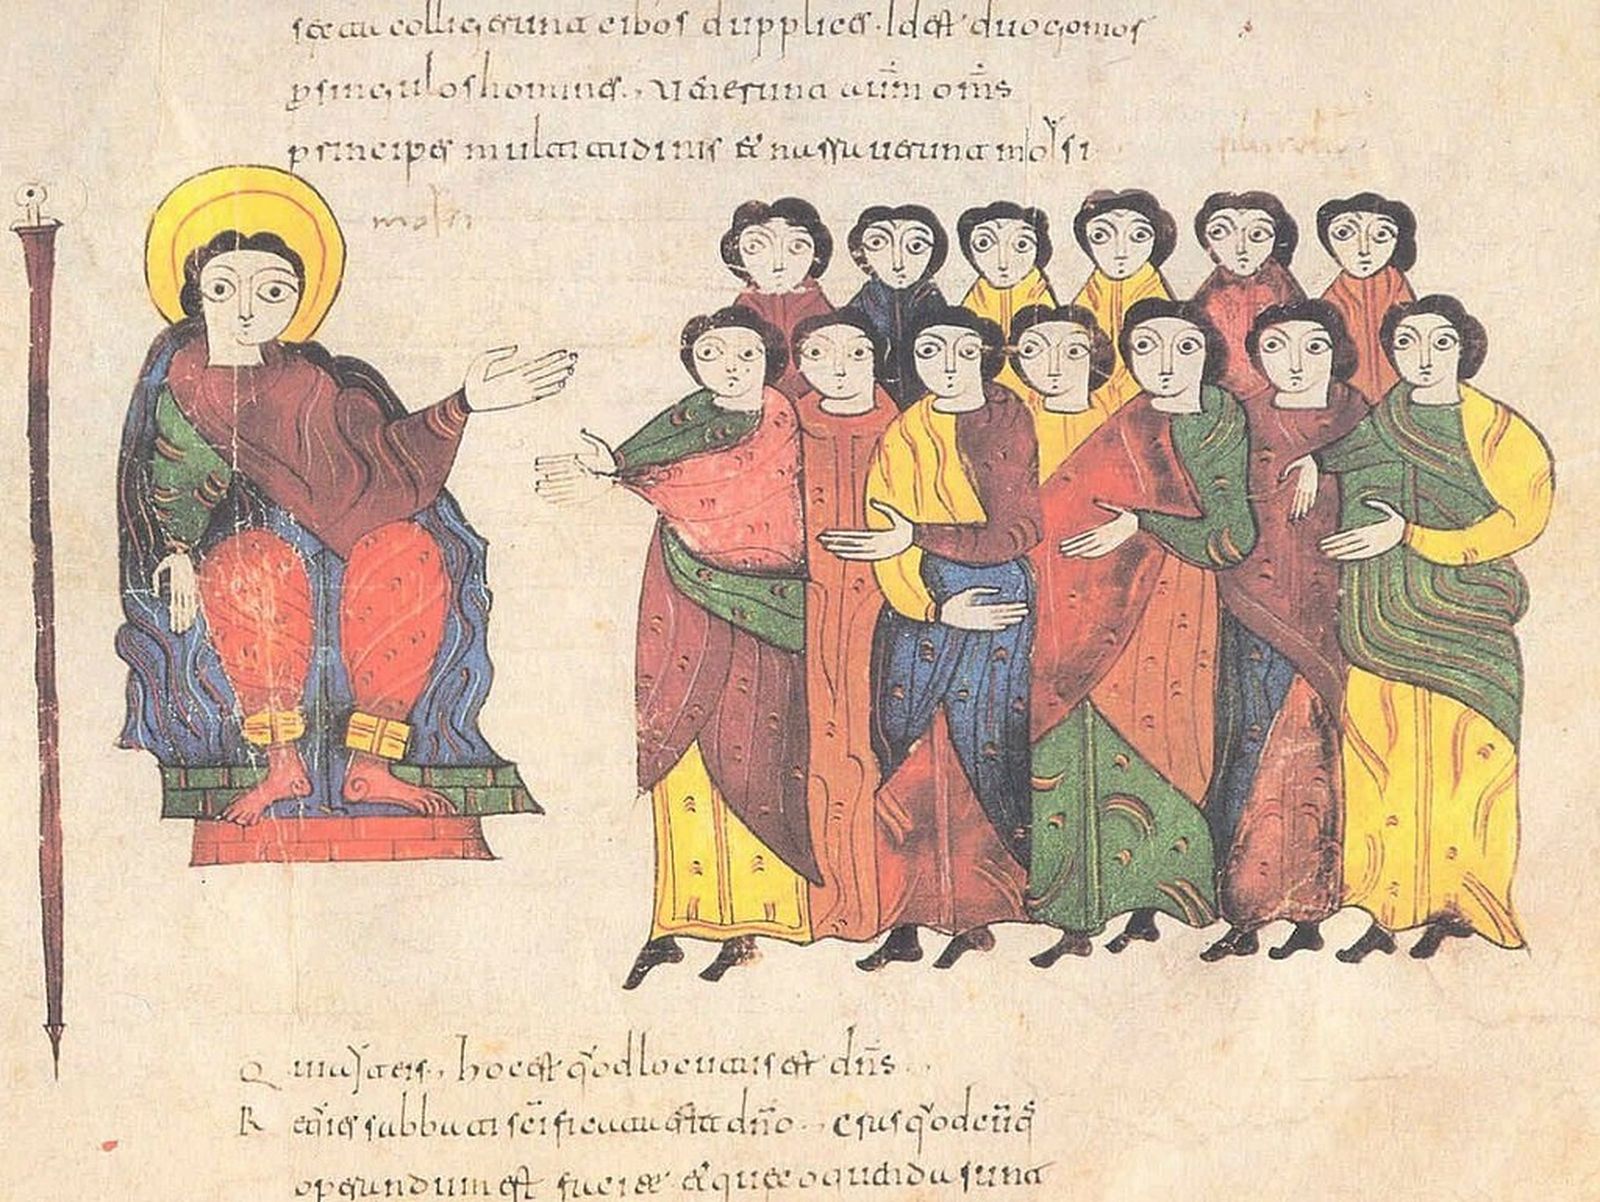 colligerunt cibos dupplices. Idest duo gomor
ꝑ singulos homines. Uenerunt aūm om̄s
principes multitudinis & narrauerunt moysi
moisi
Qui ait eis, hoc est quod locutus est dn̄s
Requies sabbati sc̄ificata est dn̄o. cras quodcūq
operandum est facite & que coquenda sunt